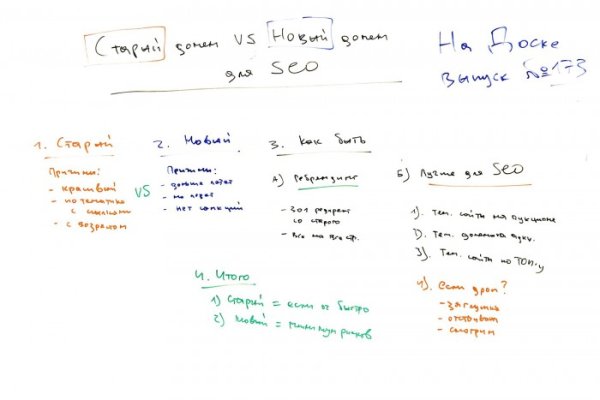 Старый домен VS Новый домен
для SEO
На Доске
выпуск №173
1. Старый
Причины:
- красивый
- по тематике
с ссылками
- с возрастом
VS
2. Новый
Причины:
- дольше
- нет санкций
3. Как быть
А) Ребрендинг
- 301 редирект
со старого
- Все на все стр.
Б) Лучше для SEO
1). Тем. сайты на аукционе
2). Тем. домены аукц.
3). Тем. сайты по ТОП-у
4). если дроп?
- загрузить
- отстоять
- смотрим
4. Итого
1) Старый = если оч быстро
2) Новый = минимум рисков